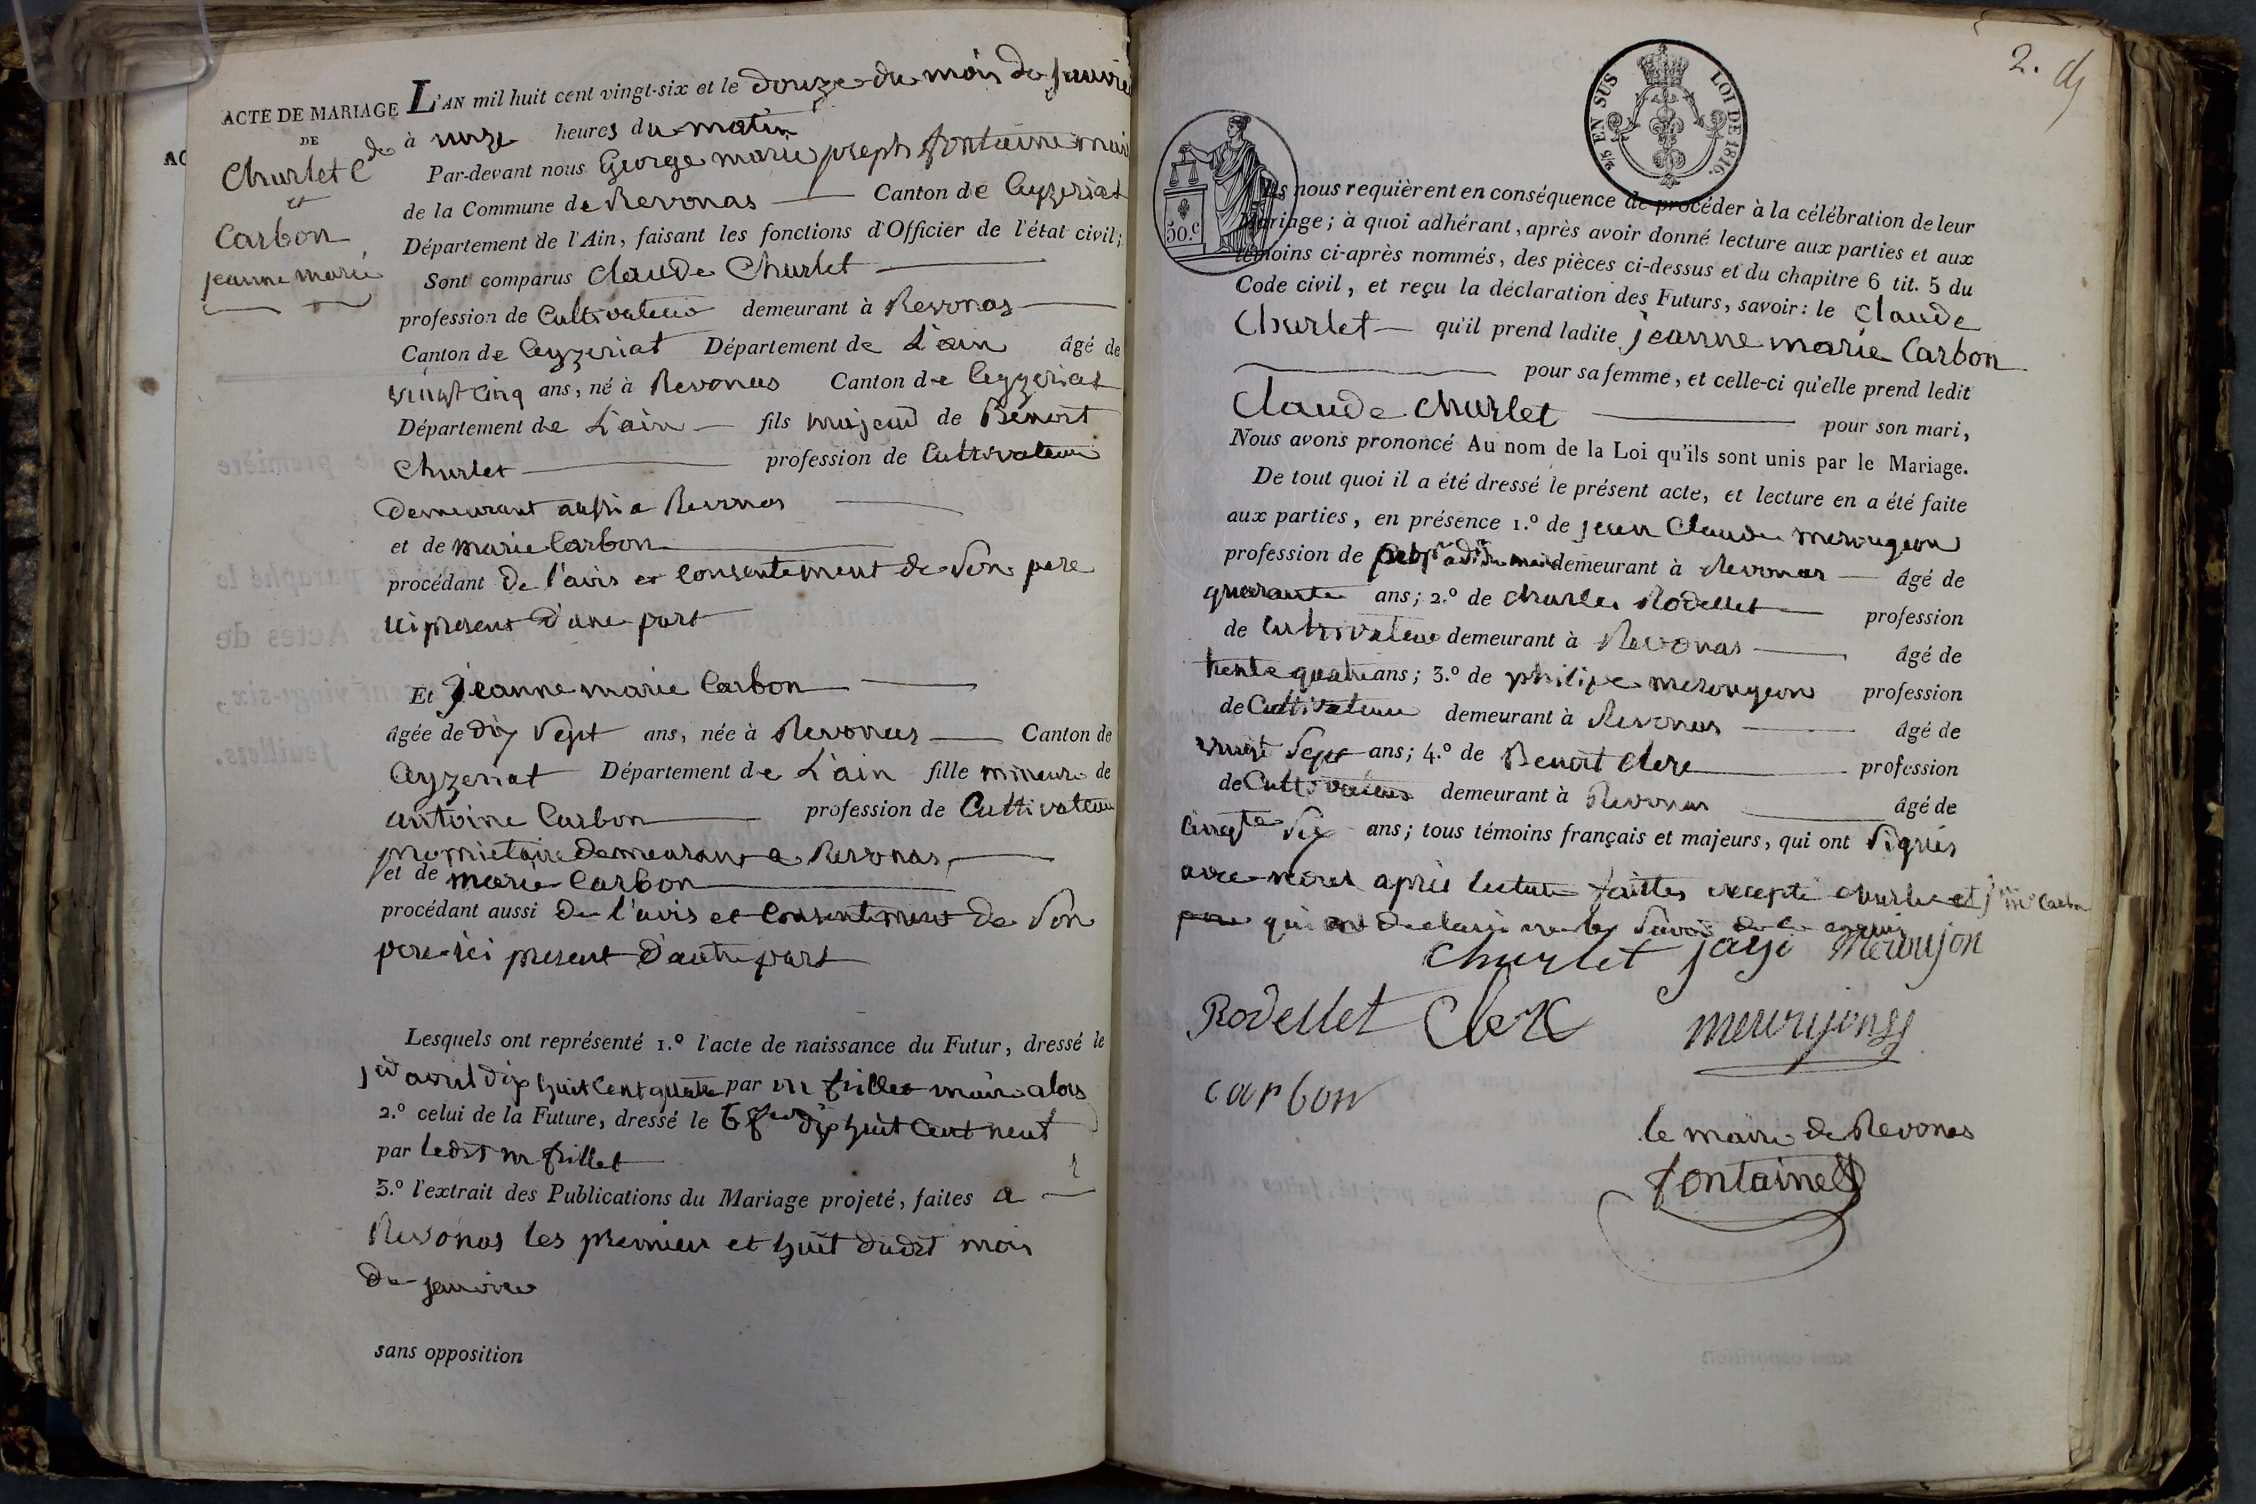 ACTE DE MARIAGE
DE
Churlet Cde
et
Carbon
jeanne marie
L'AN mil huit cent vingt-six et le douze du mois de janvier
à unze heures du matin
Par-devant nous George marie joseph fontaine mair
de la Commune de Revonas Canton de Ceyzeriat
Département de l'Ain, faisant les fonctions d'Officier de l'état civil;
Sont comparus Claude Churlet
profession de Cultivateur demeurant à Revonas
Canton de Ceyzeriat Département de L'ain âgé de
vingt cinq ans, né à Revonas Canton de Ceyzeriat
Département de L'ain fils majeur de Benoit
Churlet profession de Cultivateur
demeurant aussi a Revonas
et de marie Carbon
procédant de l'avis et consentement de son pere
ici present d'une part
Et jeanne marie Carbon
âgée de dix sept ans, née à Revonas Canton de
Ceyzeriat Département de L'ain fille mineure de
antoine Carbon profession de Cultivateur
proprietaire demeurant a Revonas
et de marie Carbon
procédant aussi de l'avis et consentement de son
pere ici present d'autre part
Lesquels ont représenté 1.º l'acte de naissance du Futur, dressé le
avril dix huit cent quatre par mr frillet maire alors
2.º celui de la Future, dressé le 6 fev dix huit cent neuf
par ledit mr frillet
3.º l'extrait des Publications du Mariage projeté, faites a
Revonas les premier et huit dudit mois
de janvier
sans opposition
2/5 EN SUS LOI DE 1816.
50.c
2.
Ils nous requièrent en conséquence de procéder à la célébration de leur
Mariage; à quoi adhérant, après avoir donné lecture aux parties et aux
témoins ci-après nommés, des pièces ci-dessus et du chapitre 6 tit. 5 du
Code civil, et reçu la déclaration des Futurs, savoir: le Claude
Churlet qu'il prend ladite jeanne marie Carbon
pour sa femme, et celle-ci qu'elle prend ledit
Claude Churlet pour son mari,
Nous avons prononcé Au nom de la Loi qu'ils sont unis par le Mariage.
De tout quoi il a été dressé le présent acte, et lecture en a été faite
aux parties, en présence 1.º de jean Claude merougeon
profession de demeurant à Revonas âgé de
quarante ans; 2.º de charles Rodellet profession
de Cultivateur demeurant à Revonas âgé de
trente quatre ans; 3.º de philipe merougeon profession
de Cultivateur demeurant à Revonas âgé de
vingt sept ans; 4.º de Benoit Clere profession
de Cultivateur demeurant à Revonas âgé de
cinqte six ans; tous témoins français et majeurs, qui ont signés
avec nous après lecture faittes excepté churlet et jne mie Carbon
pere qui ont declaré ne le savoir de ce enquis
Churlet jayi Meroujon
Rodellet Clere merujon
carbon
le maire de Revonas
fontaine